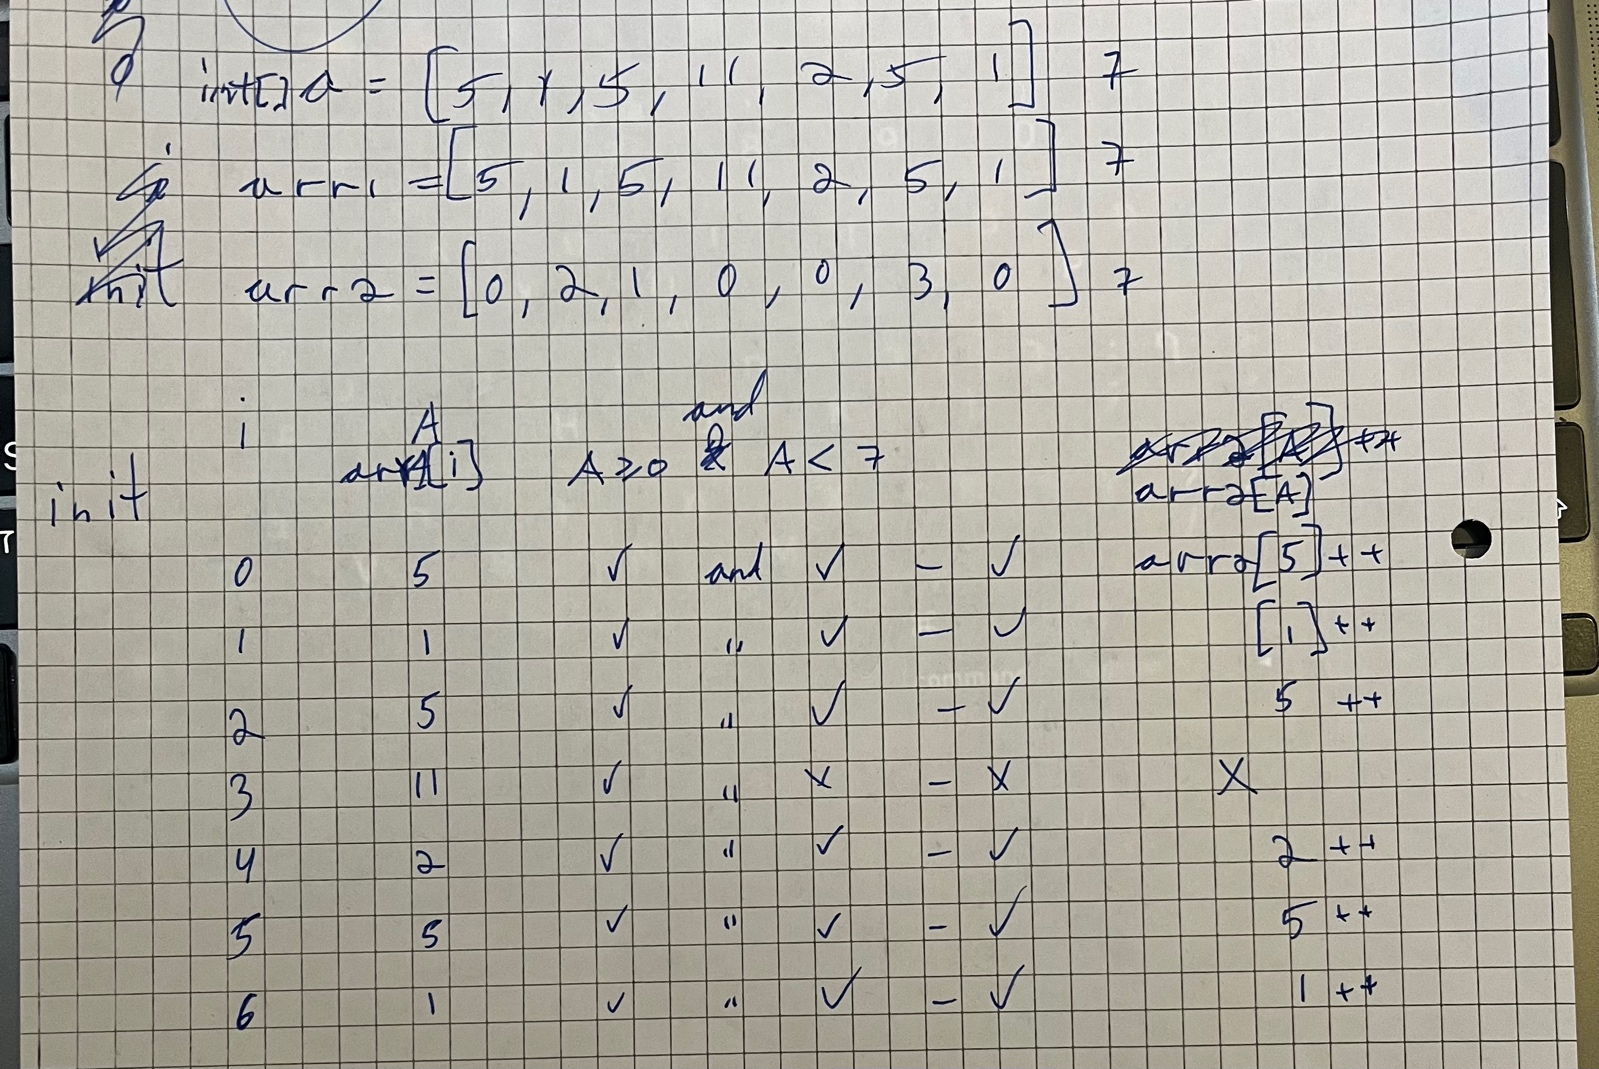 int[] a = [5, 1, 5, 11, 2, 5, 1] 7
arr1 = [5, 1, 5, 11, 2, 5, 1] 7
init arr2 = [0, 2, 1, 0, 0, 3, 0] 7
and
i A
init arr1[i] A ≥ 0 A < 7 arr2[A]++
arr2[A]
0 5 ✓ and ✓ – ✓ arr2[5]++
1 1 ✓ " ✓ – ✓ [1]++
2 5 ✓ " ✓ – ✓ 5 ++
3 11 ✓ " x – x X
4 2 ✓ " ✓ – ✓ 2 ++
5 5 ✓ " ✓ – ✓ 5 ++
6 1 ✓ " ✓ – ✓ 1 ++